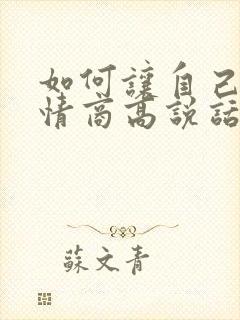 如何讓自己
情商高說話
蘇文青